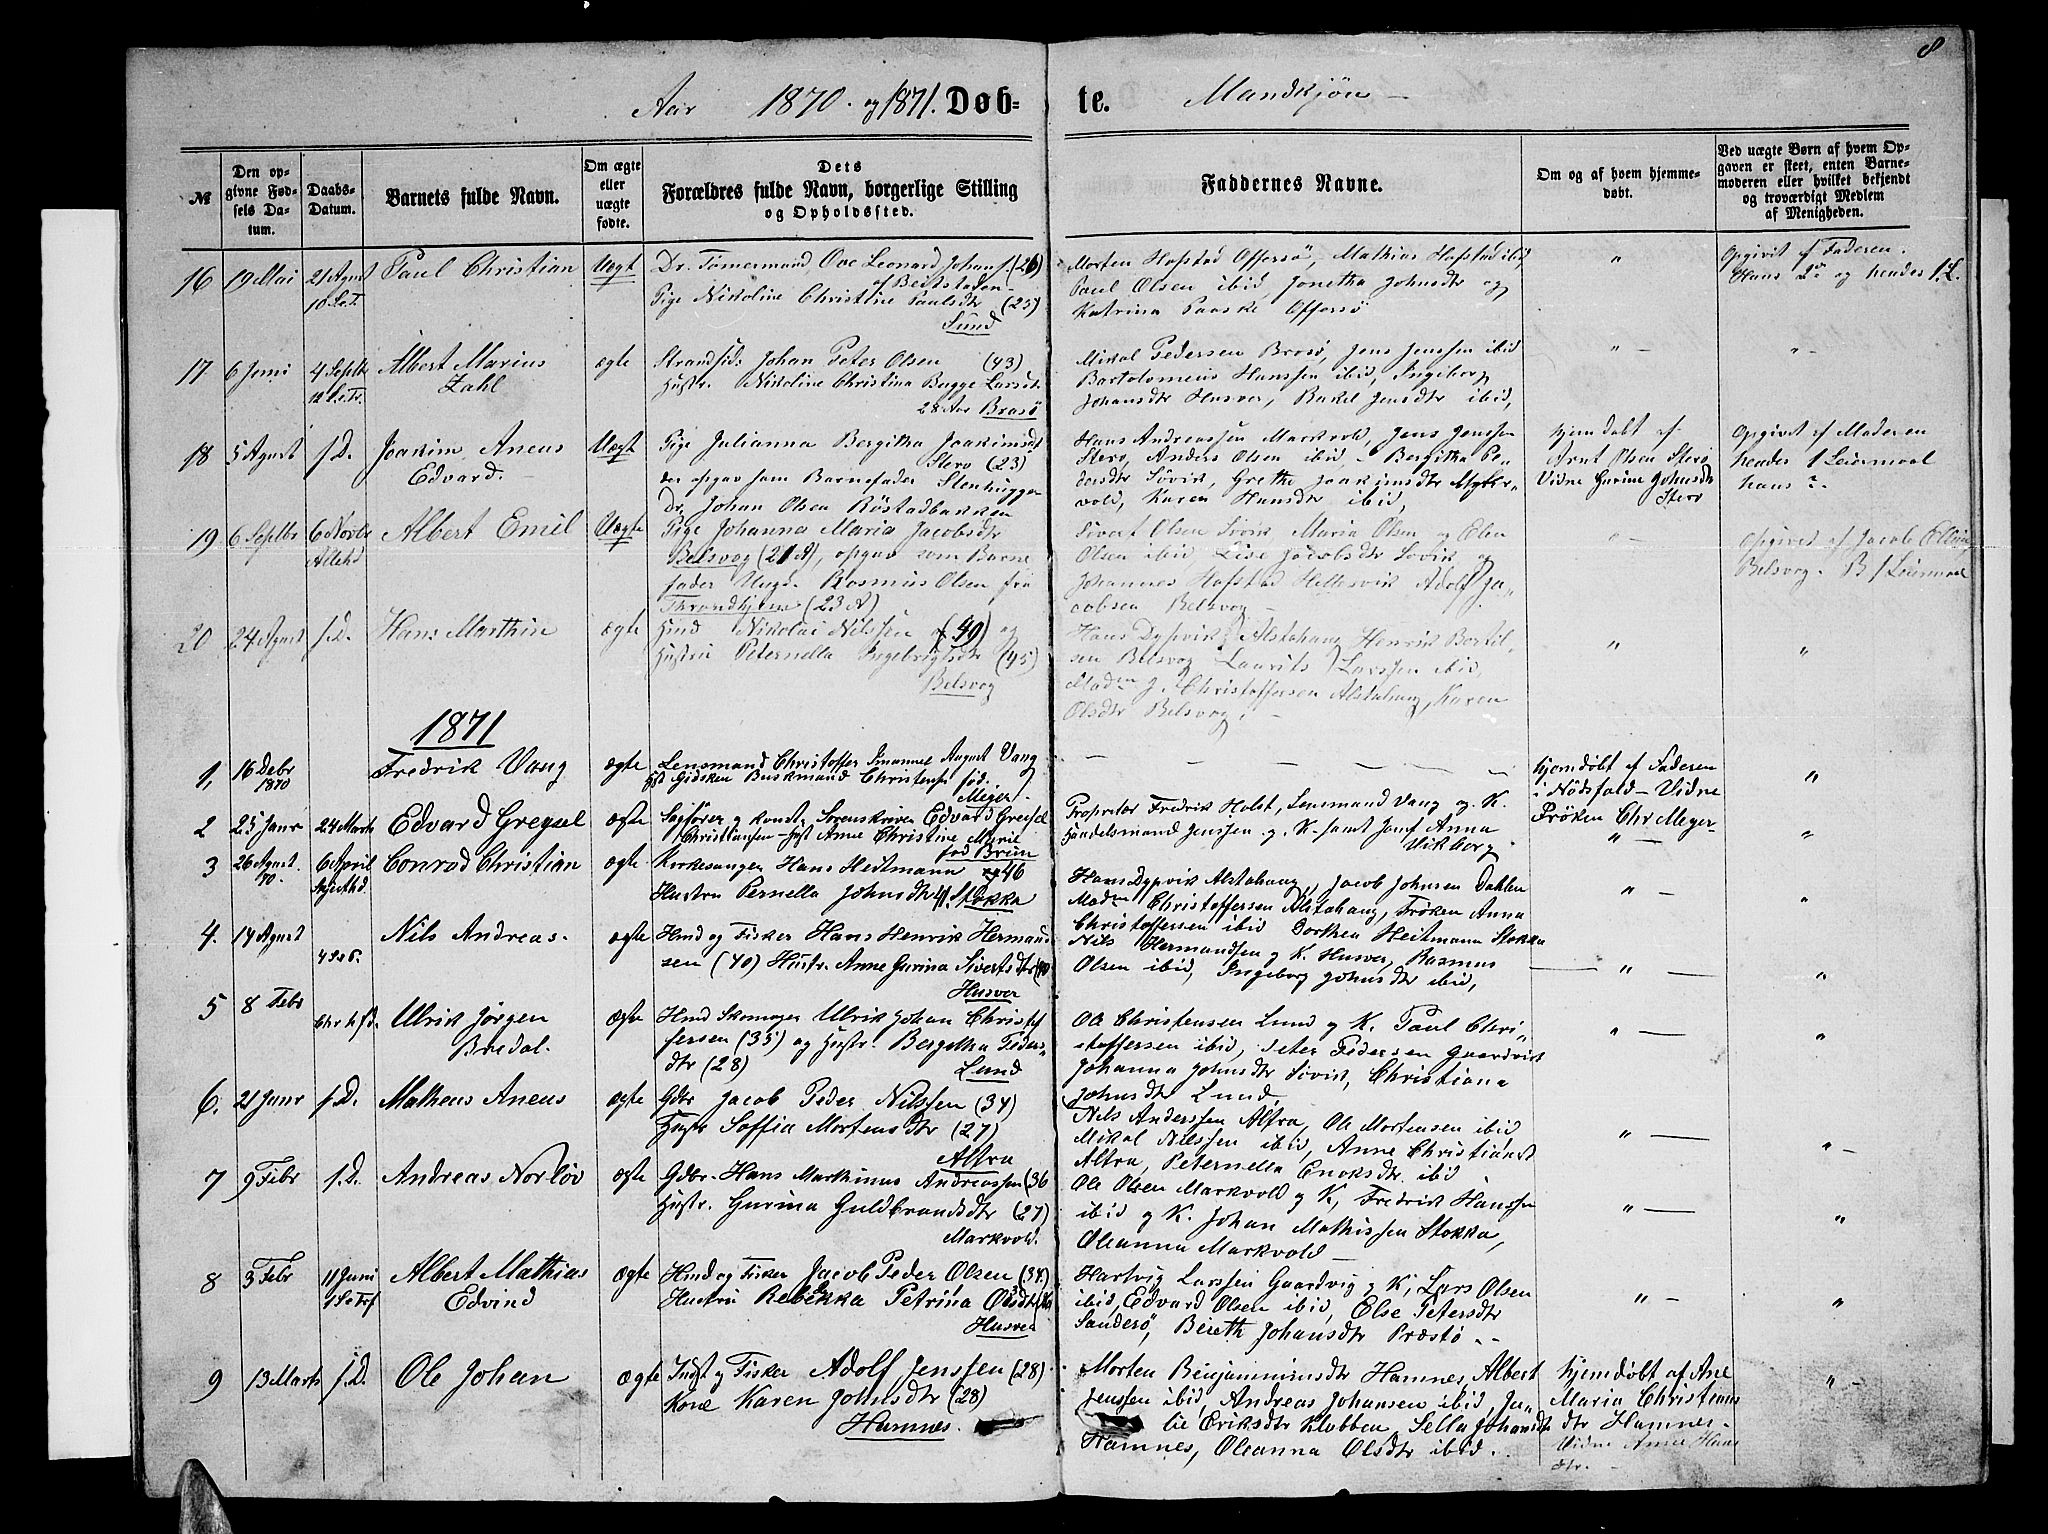 8
Aar 1870 og 1871. Døb- te. Mandkjøn
№
Den opgivne Fødsels Datum.
Daabs-Datum.
Barnets fulde Navn.
Om ægte eller uægte fødte.
Dets Forældres fulde Navn, borgerlige Stilling og Opholdssted.
Faddernes Navne.
Om og af hvem hjemmedøbt.
Ved uægte Børn af hvem Opgaven er skeet, enten Barnemoderen eller hvilket bekjendt og troværdigt Medlem af Menigheden.
16 19 Mai 21 Agust 10 S.e.T. Paul Christian Uægt Dr. Tømermand Ove Leonard Johans. (26)
af Beitstaden
Pige Nikoline Christine Paulsdtr (25)
Sund
Morten Hofstad Offersø, Mathias Hofstad ibid,
Paul Olsen ibid, Jonetha Johnsdtr og
Katrina Paaske Offersø
"
Opgivit af Faderen.
Hans 2de og hendes 1. L.
17 6 Juni 4 Septb 12 S.e.Tr. Albert Marius
Zahl
ægte Strandsid. Johan Peter Olsen (43)
Hustr. Nikoline Christina Bugge Larsd.
28 Aar Brasø
Mikal Pedersen Brasø, Jens Jenssen ibid
Bartolomeus Hanssen ibid, Ingeborg
Johansdtr Husver, Rakel Jensdtr ibid,
" -
" -
18 5 Agust s.D. Joakim Aneus
Edvard.
Uægt Pige Julianna Bergitha Joakimsdt
Stero (23)
der opgav som Barnefader Stenhugger
Dr. Johan Olsen Røstadbakken
Hans Andreassen Markvold, Jens Jenssen
Stero, Anders Olsen ibid - Bergitha Pe-
dersdtr Søvik, Grethe Joakimsdtr
vold, Karen Hansdtr ibid,
hjemdøbt af
Arnt Olsen Sterø
Vidne Gurine Johnsd
Sterø
Opgivet af Moderen
hendes 1 Leiermaal
hans ?.
19 6 Septbr 6 Novbr Allehd Albert Emil Uægte Pige Johanna Maria Jacobsdtr
Belsvog (21 A), opgav som Barne
fader Ungk. Rasmus Olsen fra
Throndhjem (23 A)
Sivert Olsen Søvik Maria Olsen og Elen
Olsen ibid, Lise Jacobsdtr Søvik og
Johannes Hofstad Hellesvik Adolf Ja-
cobsen Belsvog -
" -
Opgivet af Jacob
Belsvog. B 1 Leiermaal
20 24 Agust s.D. Hans Marthin ægte Hmd Nikolai Nilssen (49) og
Hustru Peternella Ingebrigtsdtr (45)
Belsvog
Hans Dypvik Alstahaug Henrik Bertil-
sen Belsvog Laurits Larssen ibid
Madm J. Christoffersen Alstahaug, Karen
Olsdtr Belsvog. -
"
"
1871
1, 16 Debr 1870 Fredrik Vang ægte Lensmand Christoffer Imanuel August Vang
Hst Gidsken Buskmand Christense fød.
Meyer.
- - - - -
hjemdøbt af Faderen
i Nødsfald - Vidne
Frøken Chr Meyer-
"
2 25 Janr 24 Marts Edvard Greysel ægte Sagfører og konst. Sorenskriver Edvard Greysel
Christiansen - Hst Anne Christine Marie
fød Bruun
Proprietær Fredrik Holst, Lensmand Vang og K.
Handelsmand Jenssen og K - samt Jomf Anna
Vikborg
" -
"
3 26 Agust. 70 6 April Conrad Christian ægte Kirkesanger Hans Heitmann 46
Hustru Pernella Johnsdtr 41. Stokka
Hans Dypvik Alstahaug, Jacob Johnsen Dahlen
Madm Christoffersen Alstahaug, Frøken Anna
Christoffersen ibid Dorthea Heitmann Stokka
" -
"
4. 14 Agust Nils Andreas. ægte Hmd og Fisker Hans Henrik Hermand
sen (40) Hustr. Anne Gurina Sivertsdtr (40
Husver
Nils Hermandsen og K. Husver, Rasmus
Olsen ibid, Ingeborg Johnsdtr ibid,
" -
"
5 8 Febr Chr hfd. Ulrik Jørgen
Bredal.
Ægte Hmd Skomager Ulrik Johan Christof
fersen (35) og Hustr. Bergitha Peders-
dtr (28) Lund
Ole Christensen Lund og K. Paul Chri-
stoffersen ibid, Peter Pedersen Gaardvik
Johanna Johnsdtr Søvik, Christiana
Johnsdtr Lund,
" -
"
6. 21 Janr s.D. Matheus Aneus ægte Gdbr Jacob Peder Nilssen (34)
Hustr Soffia Mortensdtr (27)
Altra
Nils Anderssen Altra, Ole Mortensen ibid
Mikal Nilssen ibid, Anne Christiansdt
Altra, Peternella Enoksdtr ibid
" -
" -
7 9 Febr s.D. Andreas Norløv ægte Gdbr. Hans Marthinus Andreassen (36
Hustr. Gurina Guldbrandsdtr (27)
Markvold.
Ole Olsen Markvold og K, Fredrik Hanssen
ibid og K. Johan Mathissen Stokka,
Oleanna Markvold -
" -
"
8 3 Febr 11 Juni 1 S.e.Trf Albert Mathias
Edvind
Ægte Hmd og Fisker Jacob Peder Olsen (34)
Hustru Rebekka Petrina Olsdtr
Husver
Hartvig Larssen Gaardvig og K, Lars Olsen
ibid, Edvard Olsen ibid, Else Petersdtr
Sanderø, Bereth Johansdtr Præstø. -
" -
"
9 13 Marts s.D. Ole Johan ægte Indst og Fisker Adolf Jenssen (28)
Kone Karen Johnsdtr (28)
Hamnes.
Morten Benjaminsdtr Hamnes, Albert
Jenssen ibid, Andreas Johansen ibid, Ju-
lie Eriksdtr Klubben, Sella Johansdt
Hamnes, Oleanna Olsdtr ibid. .
hjemdøbt af Ane
Maria Christians
dtr Hamnes -
Vidne Anne Hans
dtr. -
" -